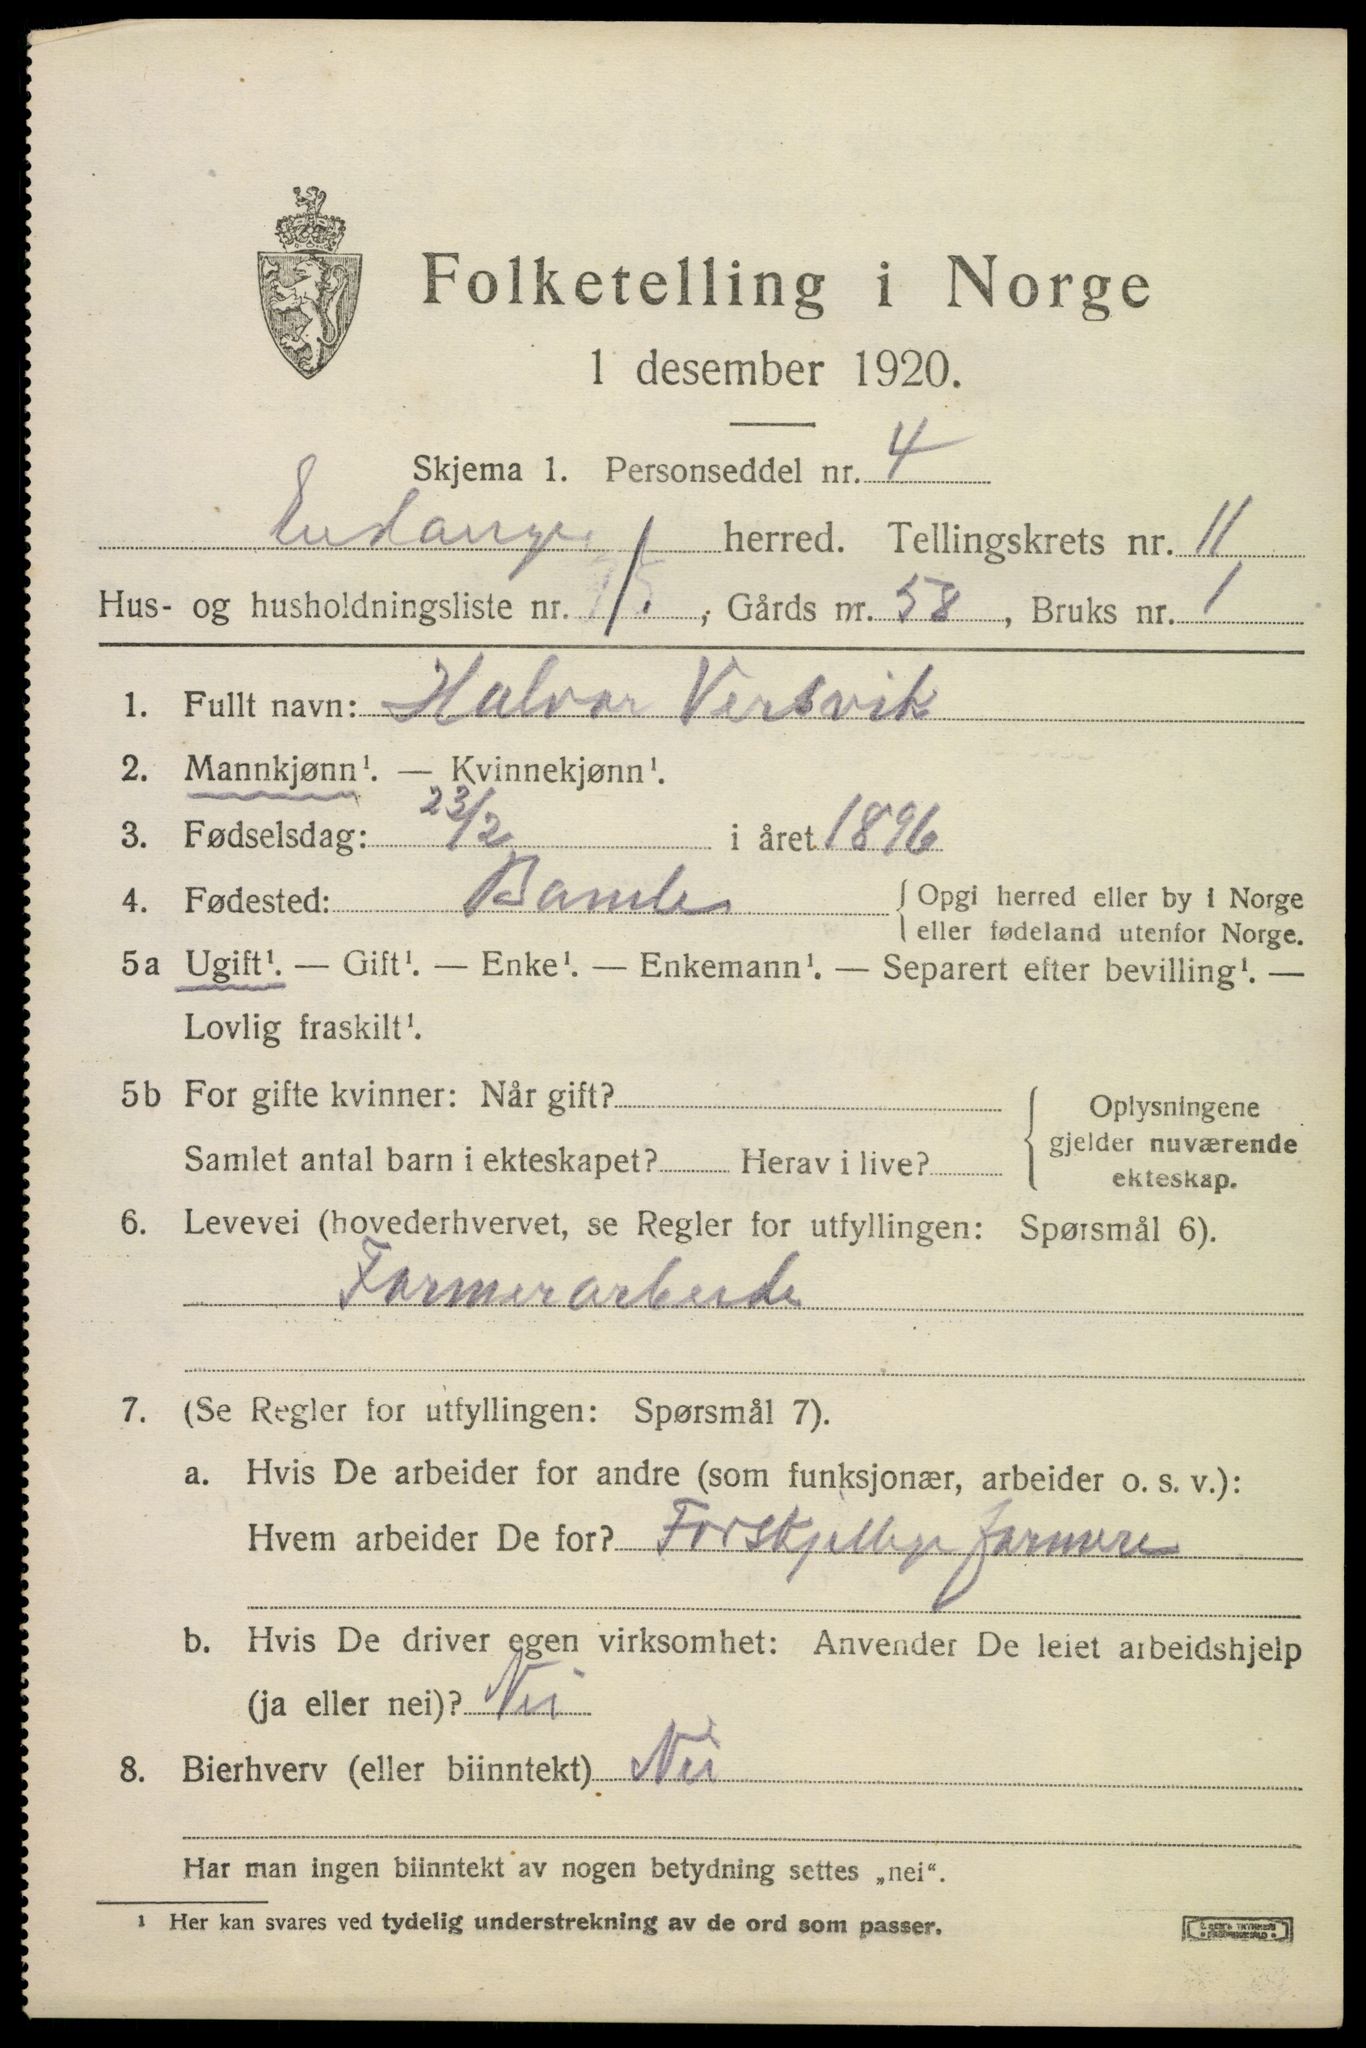 Folketelling i Norge
1 desember 1920.
Skjema 1. Personseddel nr. 4
herred. Tellingskrets nr. 11
Hus- og husholdningsliste nr. , Gårds nr. 58, Bruks nr. 1
1. Fullt navn: Halvor Versvik
2. Mannkjønn¹. — Kvinnekjønn¹.
3. Fødselsdag: 23/2 i året 1896
4. Fødested: Bamle { Opgi herred eller by i Norge
eller fødeland utenfor Norge.
5a Ugift¹. — Gift¹. — Enke¹. — Enkemann¹. — Separert efter bevilling¹. —
Lovlig fraskilt¹.
5b For gifte kvinner: Når gift?
Samlet antal barn i ekteskapet? Herav i live?
Oplysningene
gjelder nuværende
ekteskap.
6. Levevei (hovederhvervet, se Regler for utfyllingen: Spørsmål 6).
Farmerarbeide
7. (Se Regler for utfyllingen: Spørsmål 7).
a. Hvis De arbeider for andre (som funksjonær, arbeider o. s. v.):
Hvem arbeider De for? Forskjellige farmere
b. Hvis De driver egen virksomhet: Anvender De leiet arbeidshjelp
(ja eller nei)? Nei
8. Bierhverv (eller biinntekt) Nei
Har man ingen biinntekt av nogen betydning settes „nei“.
¹ Her kan svares ved tydelig understrekning av de ord som passer.